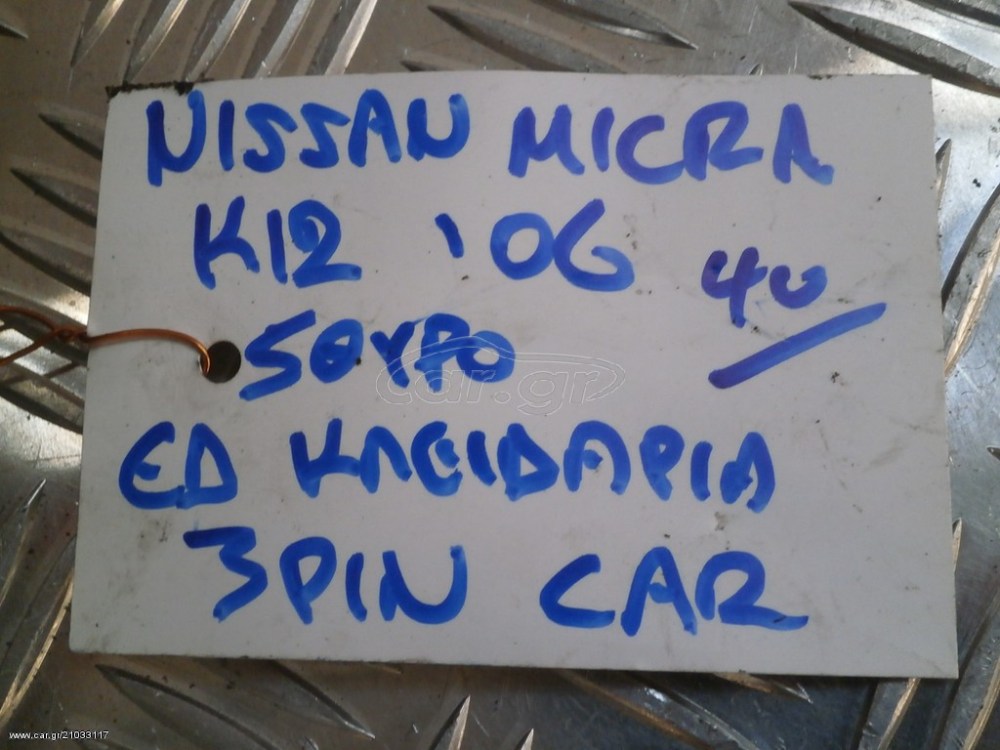 NISSAN MICRA
K12 '06 40
5ΘΥΡΟ
ΕΔ ΚΛΕΙΔΑΡΙΑ
3PIN CAR
car.gr
www.car.gr/21033117